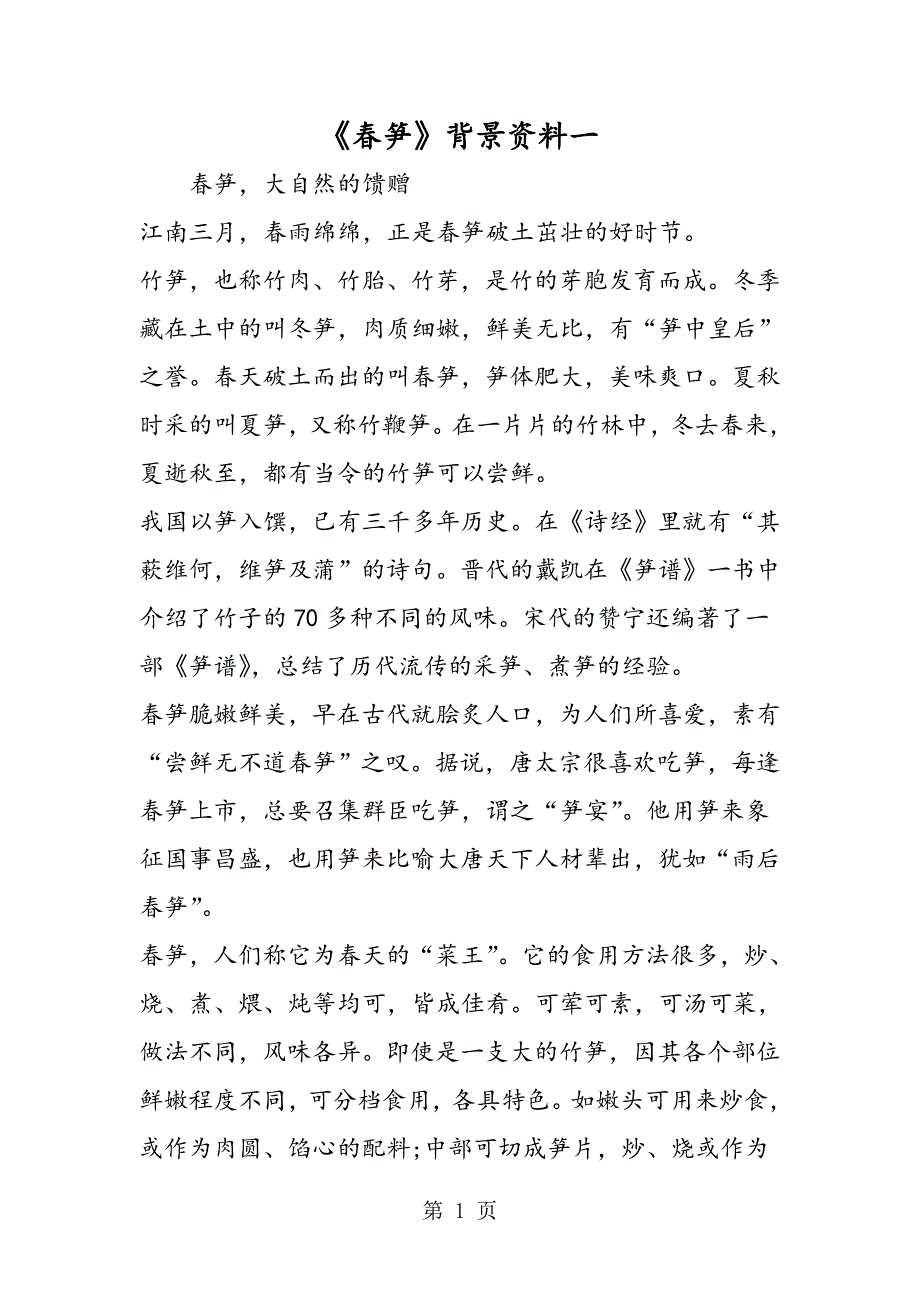 《春笋》背景资料一
春笋，大自然的馈赠
江南三月，春雨绵绵，正是春笋破土茁壮的好时节。
竹笋，也称竹肉、竹胎、竹芽，是竹的芽胞发育而成。冬季
藏在土中的叫冬笋，肉质细嫩，鲜美无比，有“笋中皇后”
之誉。春天破土而出的叫春笋，笋体肥大，美味爽口。夏秋
时采的叫夏笋，又称竹鞭笋。在一片片的竹林中，冬去春来，
夏逝秋至，都有当令的竹笋可以尝鲜。
我国以笋入馔，已有三千多年历史。在《诗经》里就有“其
蔌维何，维笋及蒲”的诗句。晋代的戴凯在《笋谱》一书中
介绍了竹子的 70 多种不同的风味。宋代的赞宁还编著了一
部《笋谱》，总结了历代流传的采笋、煮笋的经验。
春笋脆嫩鲜美，早在古代就脍炙人口，为人们所喜爱，素有
“尝鲜无不道春笋”之叹。据说，唐太宗很喜欢吃笋，每逢
春笋上市，总要召集群臣吃笋，谓之“笋宴”。他用笋来象
征国事昌盛，也用笋来比喻大唐天下人材辈出，犹如“雨后
春笋”。
春笋，人们称它为春天的“菜王”。它的食用方法很多，炒、
烧、煮、煨、炖等均可，皆成佳肴。可荤可素，可汤可菜，
做法不同，风味各异。即使是一支大的竹笋，因其各个部位
鲜嫩程度不同，可分档食用，各具特色。如嫩头可用来炒食，
或作为肉圆、馅心的配料;中部可切成笋片，炒、烧或作为
第 1 页